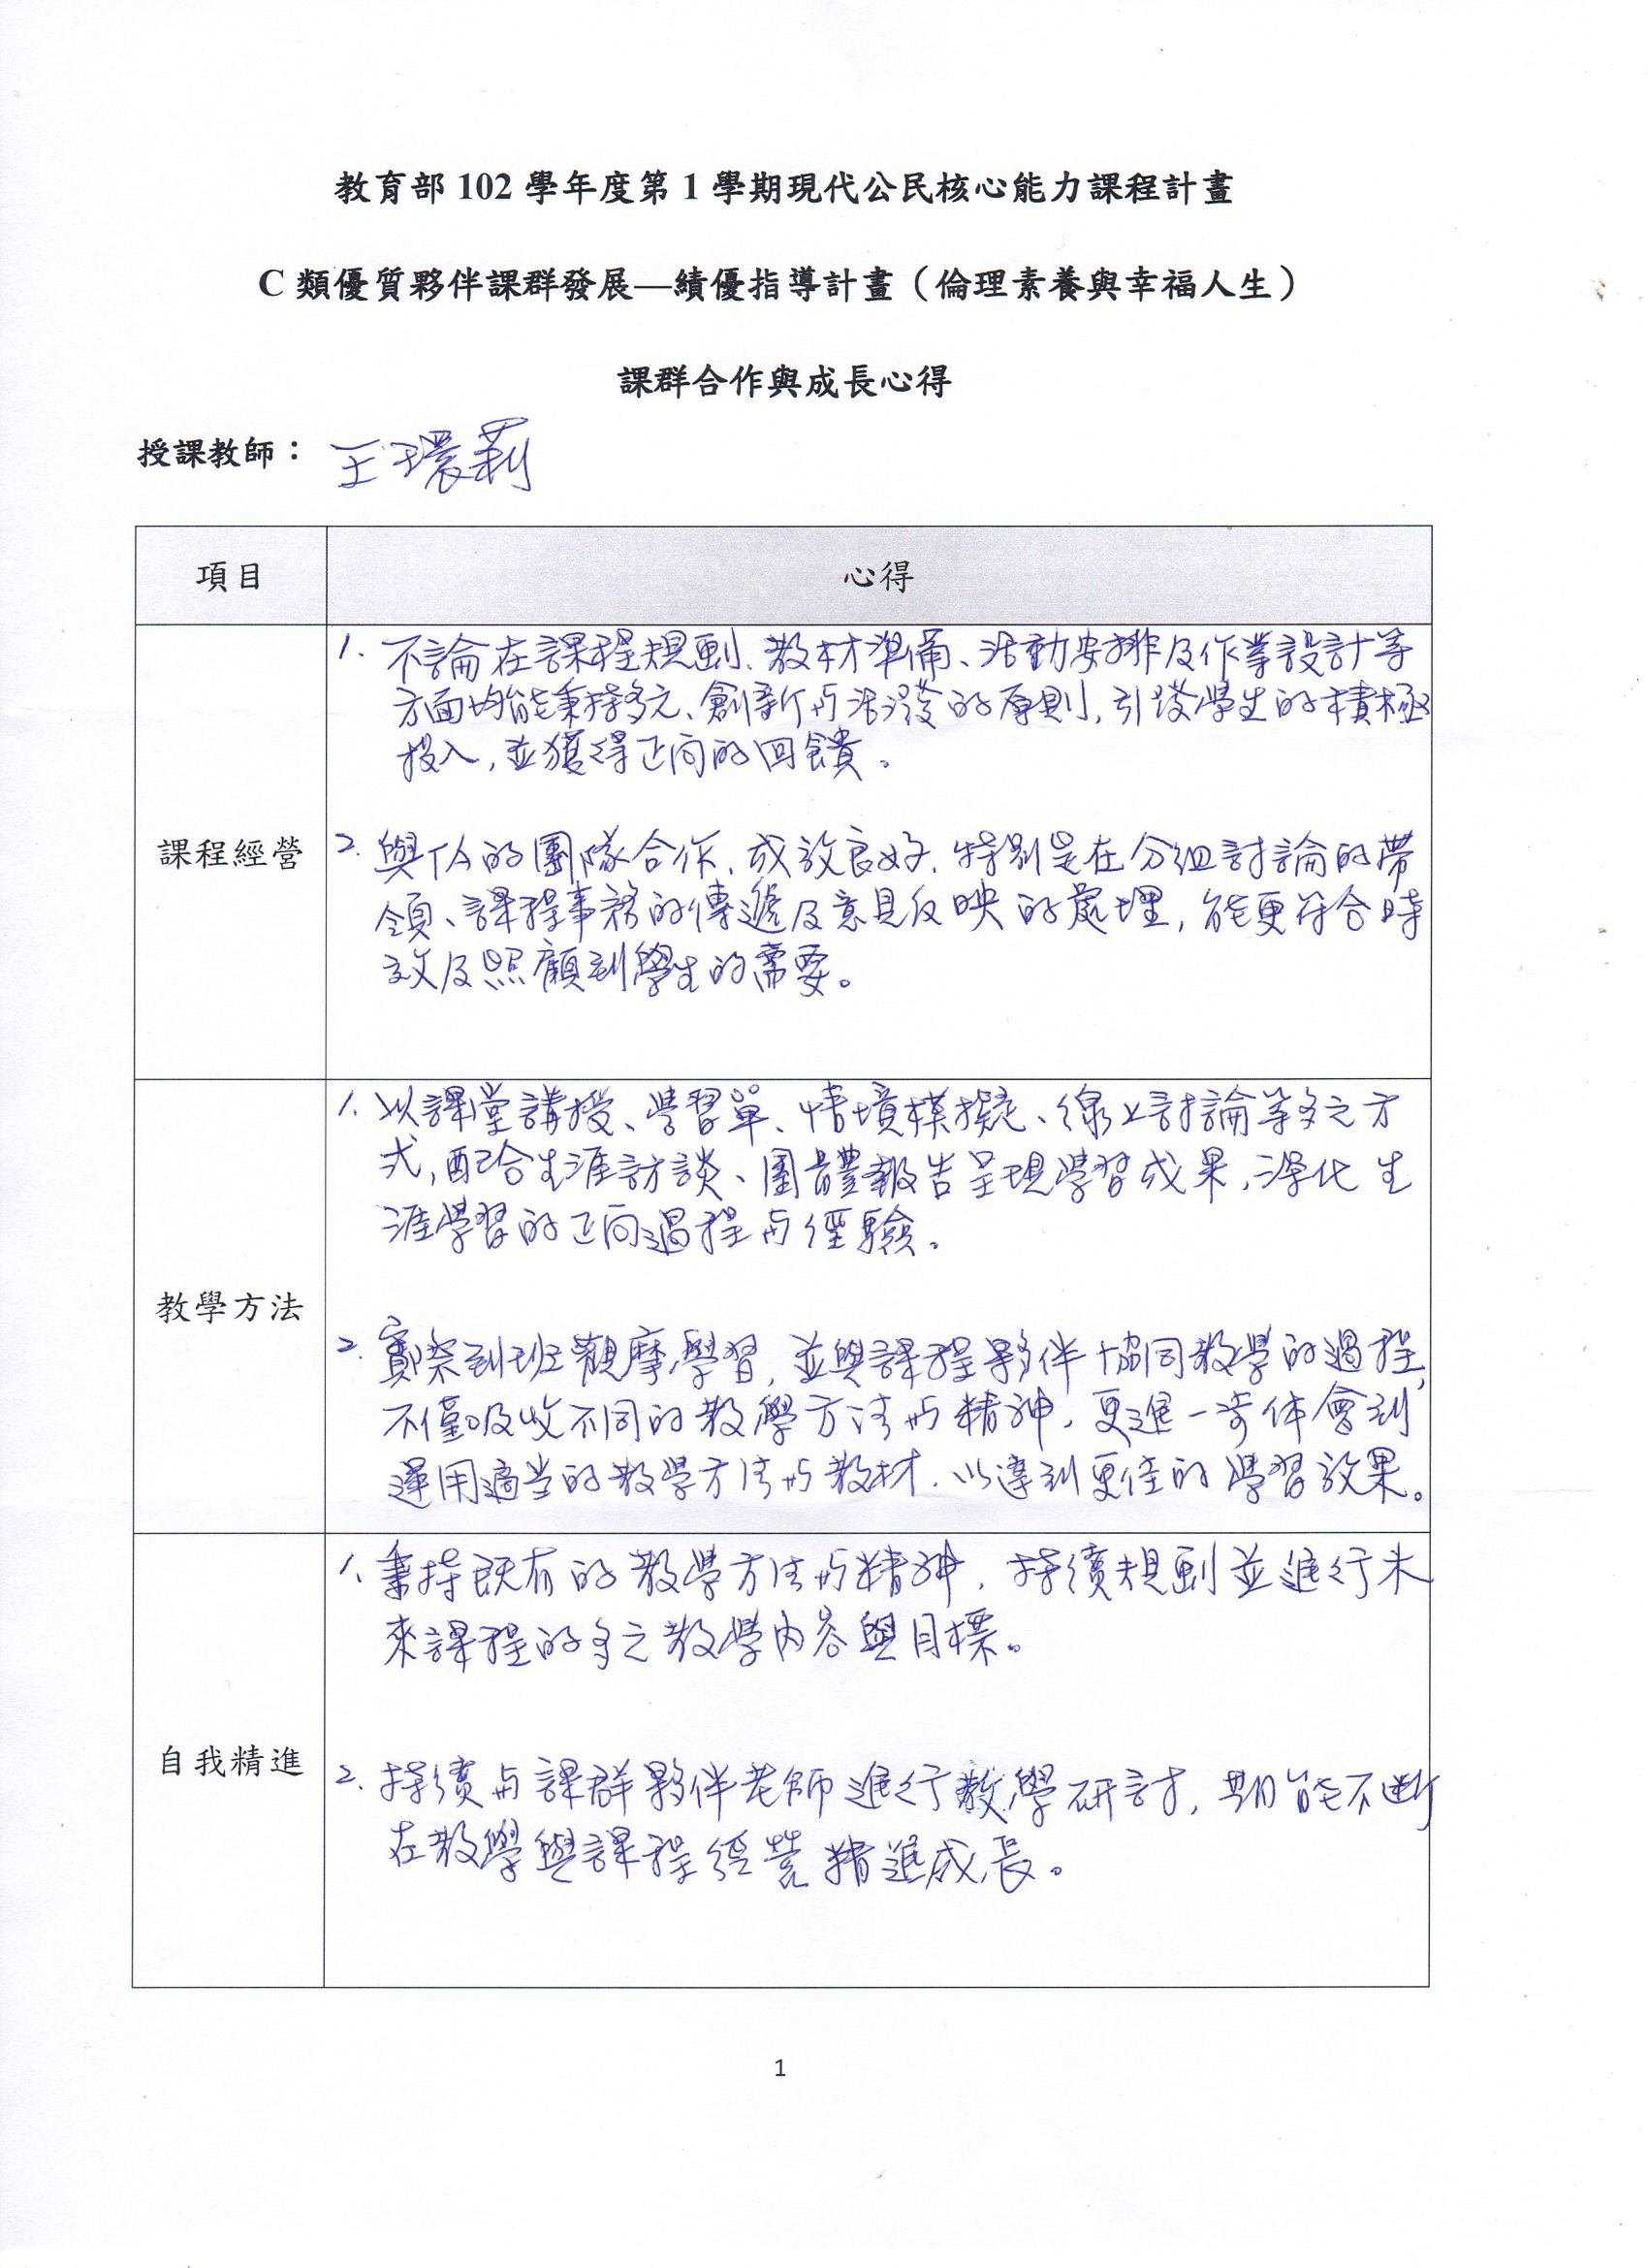 教育部 102 學年度第 1 學期現代公民核心能力課程計畫
C 類優質夥伴課群發展—績優指導計畫（倫理素養與幸福人生）
課群合作與成長心得
授課教師： 王環莉
項目
心得
課程經營
1. 不論在課程規劃、教材準備、活動安排及作業設計等
方面均能秉持多元、創新与活潑的原則, 引發學生的積極
投入, 並獲得正向的回饋。
2. 與TA的團隊合作, 成效良好, 特別是在分組討論的帶
領、課程事務的傳遞及意見反映的處理, 能更符合時
效及照顧到學生的需要。
教學方法
1. 以課堂講授、學習單、情境模擬、線上討論等多元方
式, 配合生涯訪談、團體報告呈現學習成果, 深化生
涯學習的正向過程与經驗。
2. 實際到班觀摩學習, 並與課程夥伴協同教學的過程,
不僅吸收不同的教學方法与精神, 更進一步体會到
運用適当的教学方法与教材, 以達到更佳的學習效果。
自我精進
1. 秉持既有的教學方法与精神, 持續規劃並進行未
來課程的多元教學內容與目標。
2. 持續与課群夥伴老師進行教學研討, 期能不斷
在教學與課程經營精進成長。
1